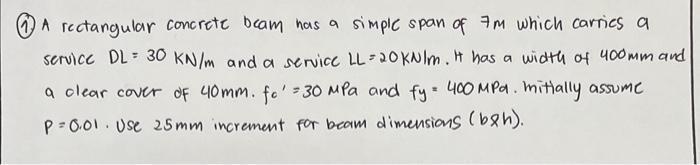 ① A rectangular concrete beam has a simple span of 7m which carries a
service DL = 30 KN/m and a service LL = 20 KN/m. It has a width of 400mm and
a clear cover of 40mm. fc' = 30 MPa and fy = 400 MPa. Initially assume
P = 0.01. Use 25mm increment for beam dimensions (b&h).